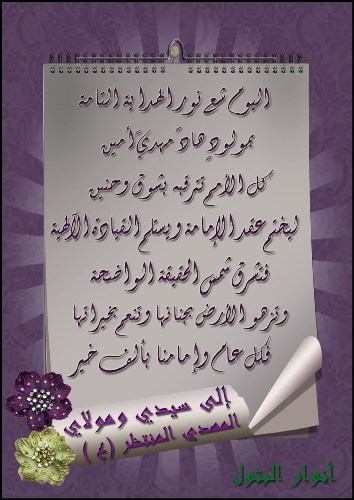 اليوم شع نور الهداية التامة
بمولودٍ هادً مهديً أمين
كل الأمم ترقبه بشوق وحنين
ليختم عقد الإمامة ويستلم القيادة الآلهية
فتشرق شمس الحقيقة الواضحة
وتزهو الأرض بجنانها وتنعم بخيراتها
فكل عام وإمامنا بألف خير
إلى سيدي ومولاي
المهدي المنتظر (عج)
أنوار البتول